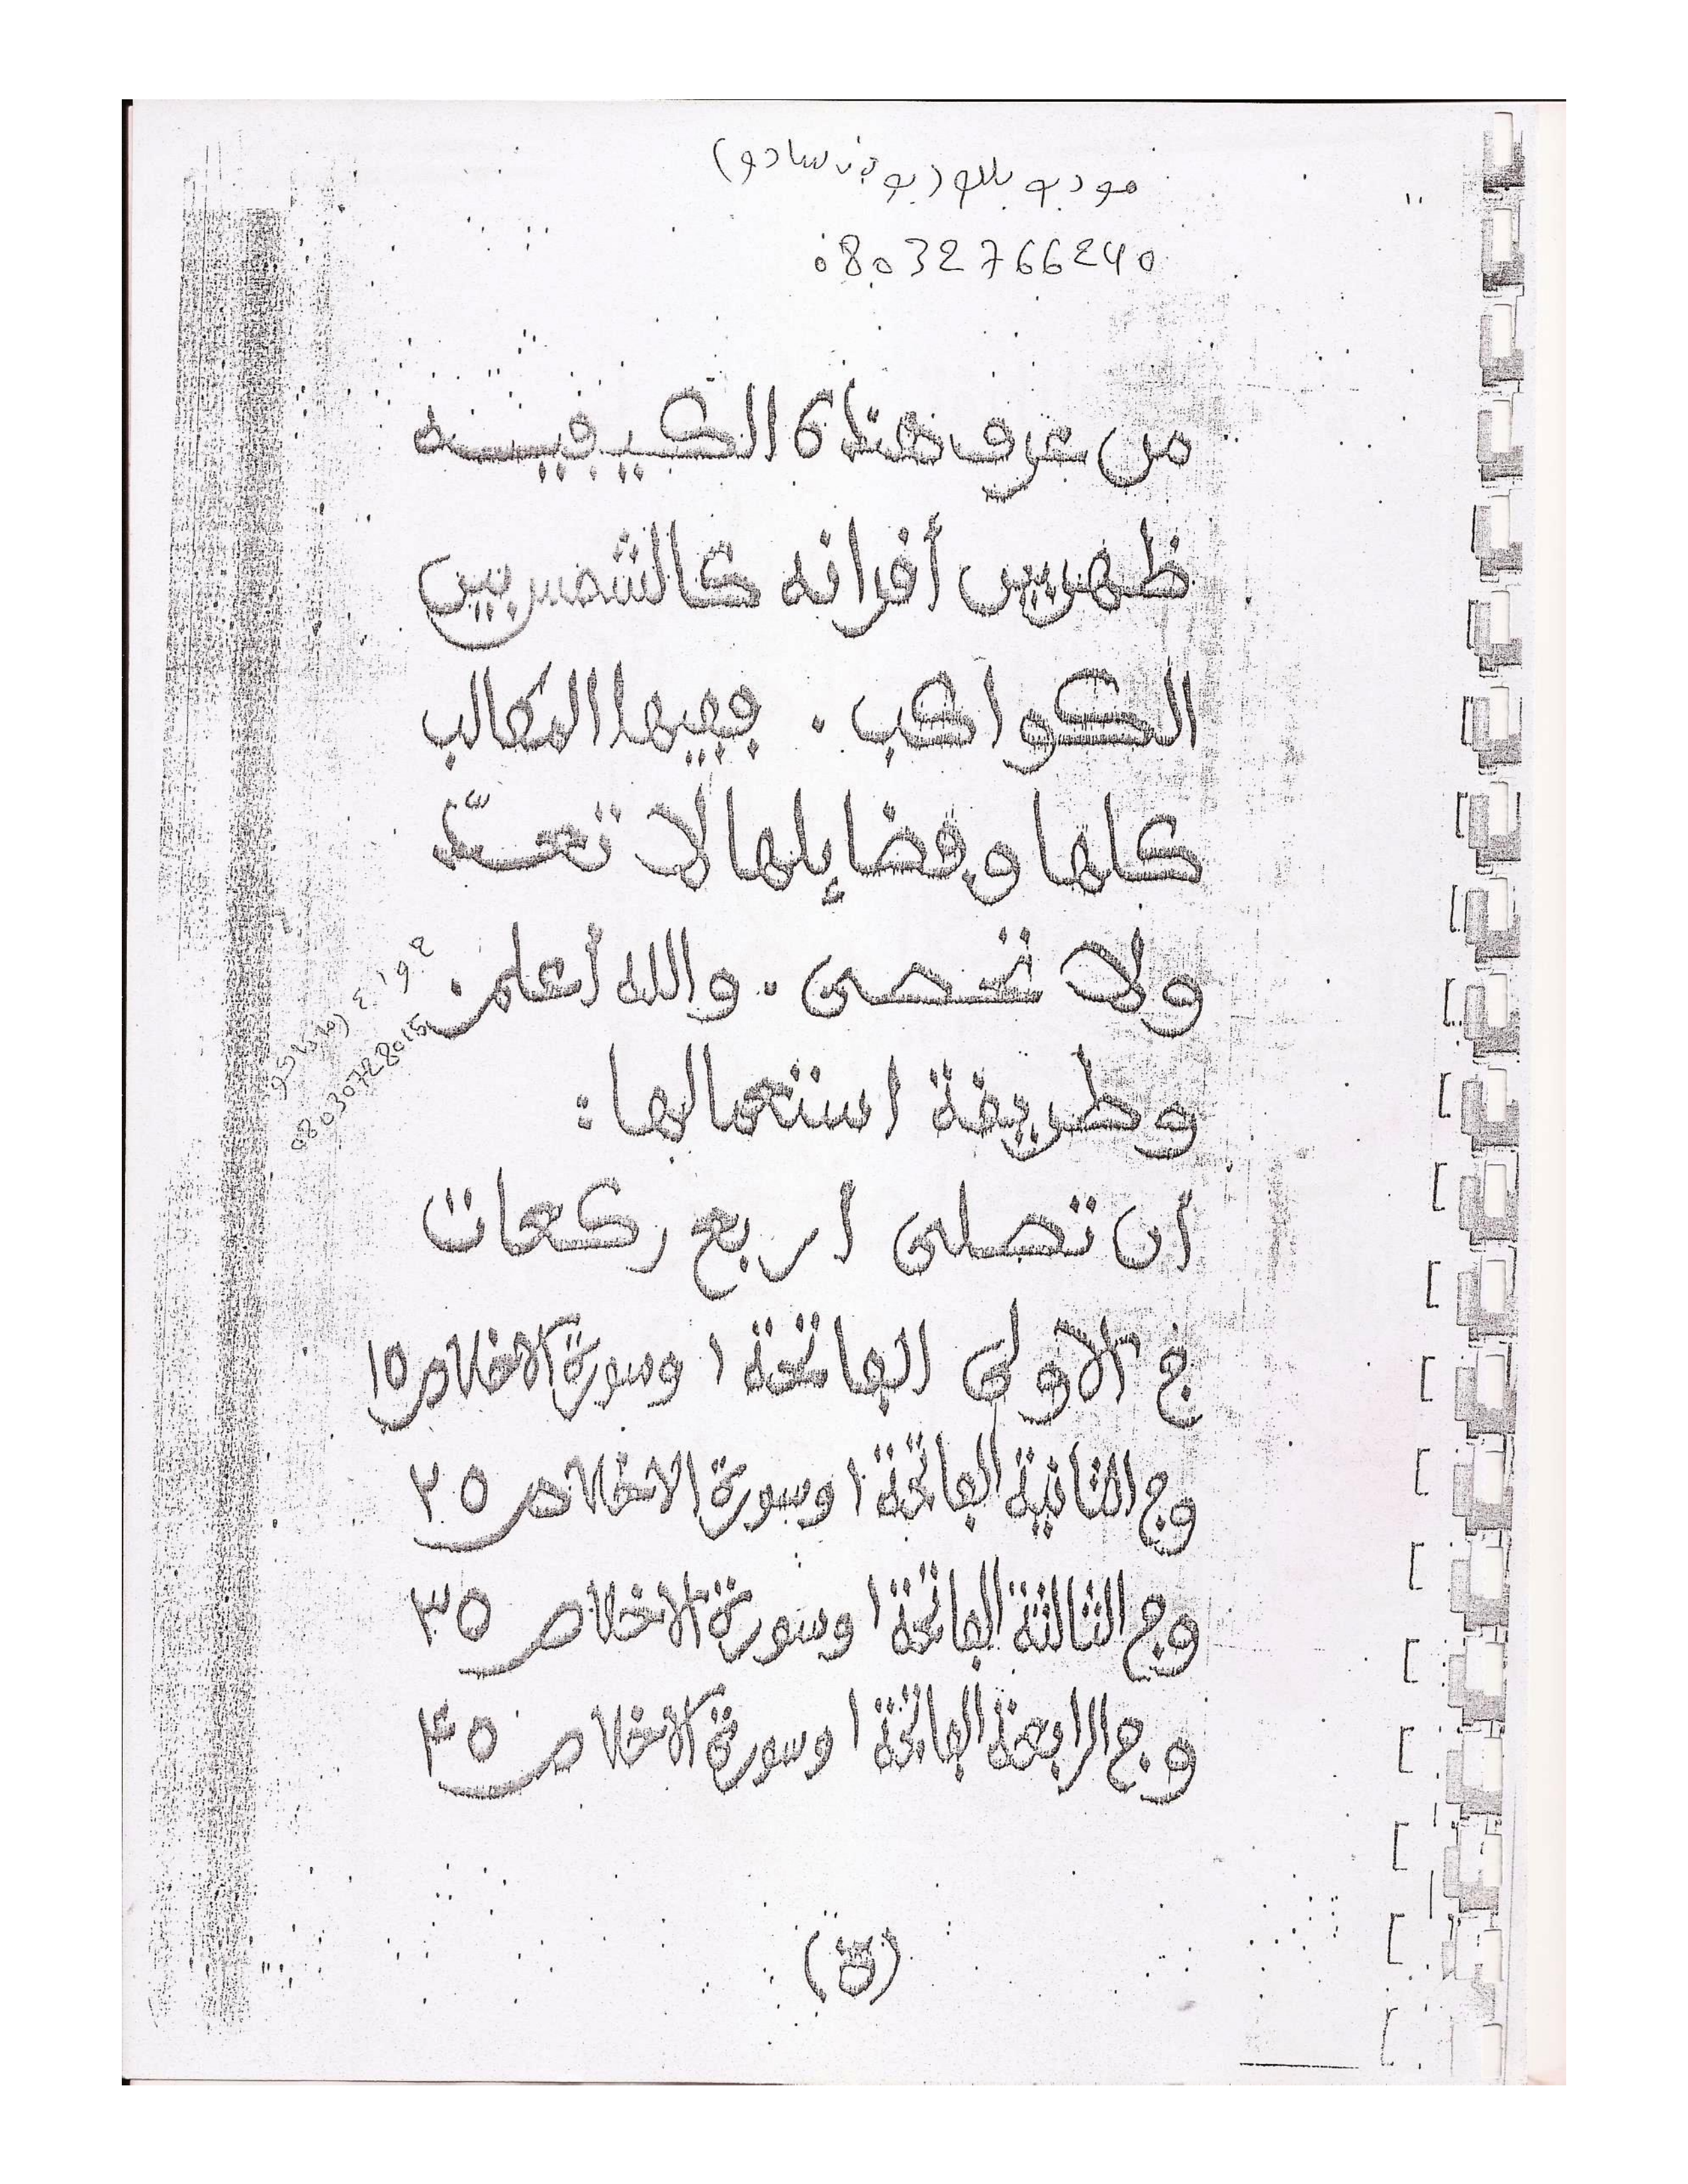 مودبو بللو (بوبن سادو)
08032766240
من عرف هذه الكيفيه
ظهر بين أفرانه كالشمس بين
الكواكب . ففيها المطالب
كلها وفضايلها لا تعدّ
ولا تحصى . والله أعلم .
08030728015
وطريقة استعمالها :
ان تصلى اربع ركعات
في الاولى الفاتحة ١ وسورة الاخلاص ١٥
وفي الثانية الفاتحة ١ وسورة الاخلاص ٢٥
وفي الثالثة الفاتحة ١ وسورة الاخلاص ٣٥
وفي الرابعة الفاتحة ١ وسورة الاخلاص ٤٥